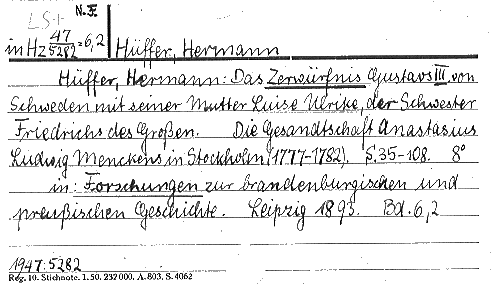 LS+ N. F.
in Hz 47/5282 = 6,2 Hüffer, Hermann
Hüffer, Hermann: Das Zerwürfnis Gustavs III. von
Schweden mit seiner Mutter Luise Ulrike, der Schwester
Friedrichs des Großen. Die Gesandtschaft Anastasius
Ludwig Menckens in Stockholm (1777-1782). S. 35-108. 8°
in: Forschungen zur brandenburgischen und
preußischen Geschichte. Leipzig 1893. Bd. 6,2
1947:5282
Rdg. 10. Stichnote. I. 50. 232000. A. 803. S. 4062